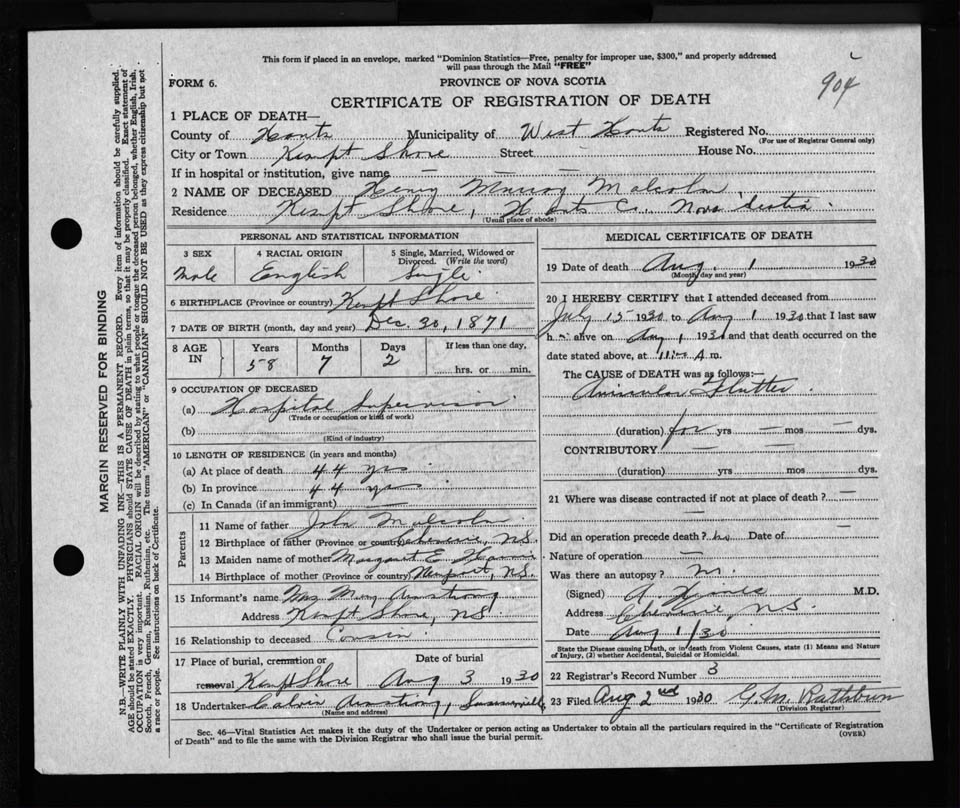 This form if placed in an envelope, marked "Dominion Statistics—Free, penalty for improper use, $300," and properly addressed
will pass through the Mail "FREE"
904
FORM 6.
PROVINCE OF NOVA SCOTIA
CERTIFICATE OF REGISTRATION OF DEATH
1 PLACE OF DEATH—
County of Hants Municipality of West Hants Registered No.
(For use of Registrar General only)
City or Town Kempt Shore Street - House No.
If in hospital or institution, give name — — —
2 NAME OF DECEASED Henry Murray Malcolm
Residence Kempt Shore, Hants Co. Nova Scotia
(Usual place of abode)
PERSONAL AND STATISTICAL INFORMATION
3 SEX Male
4 RACIAL ORIGIN English
5 Single, Married, Widowed or Divorced. (Write the word) Single
6 BIRTHPLACE (Province or country) Kempt Shore
7 DATE OF BIRTH (month, day and year) Dec. 30, 1871
8 AGE IN Years 58 Months 7 Days 2 If less than one day, hrs. or min.
9 OCCUPATION OF DECEASED
(a) Hospital Supervisor
(Trade or occupation or kind of work)
(b)
(Kind of industry)
10 LENGTH OF RESIDENCE (in years and months)
(a) At place of death 44 yrs
(b) In province 44 yrs
(c) In Canada (if an immigrant) —
Parents
11 Name of father John Malcolm
12 Birthplace of father (Province or country) Cheverie, N.S.
13 Maiden name of mother Margaret E.
14 Birthplace of mother (Province or country) Newport, N.S.
15 Informant's name Mrs Mary Armstrong
Address Kempt Shore, NS
16 Relationship to deceased Cousin
17 Place of burial, cremation or removal Kempt Shore Date of burial Aug 3 1930
18 Undertaker Calvin Armstrong, Summerville
(Name and address)
MEDICAL CERTIFICATE OF DEATH
19 Date of death Aug. 1 1930
(Month, day and year)
20 I HEREBY CERTIFY that I attended deceased from
July 15 1930 to Aug 1 1930 that I last saw
h alive on Aug 1 1930 and that death occurred on
date stated above, at m.
The CAUSE of DEATH was as follows:—
Auricular Flutter
(duration) for yrs — mos — dys.
CONTRIBUTORY —
(duration) yrs — mos — dys.
21 Where was disease contracted if not at place of death? —
Did an operation precede death? no Date of —
Nature of operation —
Was there an autopsy?
(Signed) M.D.
Address Cheverie, N.S.
Date Aug 1/30
State the Disease causing Death, or in death from Violent Causes, state (1) Means and Nature
of Injury, (2) whether Accidental, Suicidal or Homicidal.
22 Registrar's Record Number 3
23 Filed Aug 2nd 1930 G. M. Rathbun
(Division Registrar)
Sec. 46—Vital Statistics Act makes it the duty of the Undertaker or person acting as Undertaker to obtain all the particulars required in the "Certificate of Registration
of Death" and to file the same with the Division Registrar who shall issue the burial permit.
(OVER)
MARGIN RESERVED FOR BINDING
N.B.—WRITE PLAINLY WITH UNFADING INK—THIS IS A PERMANENT RECORD. Every item of information should be carefully supplied.
AGE should be stated EXACTLY. PHYSICIANS should STATE CAUSE OF DEATH in plain terms, so that it may be properly classified. Exact statement of
OCCUPATION is very important. RACIAL ORIGIN will be described by stating to what people or tongue the deceased person belonged, whether English, Irish,
Scotch, French, German, Russian, Ruthenian, etc. The terms "AMERICAN" or "CANADIAN" SHOULD NOT BE USED as they express citizenship but not
a race or people. See instructions on back of Certificate.